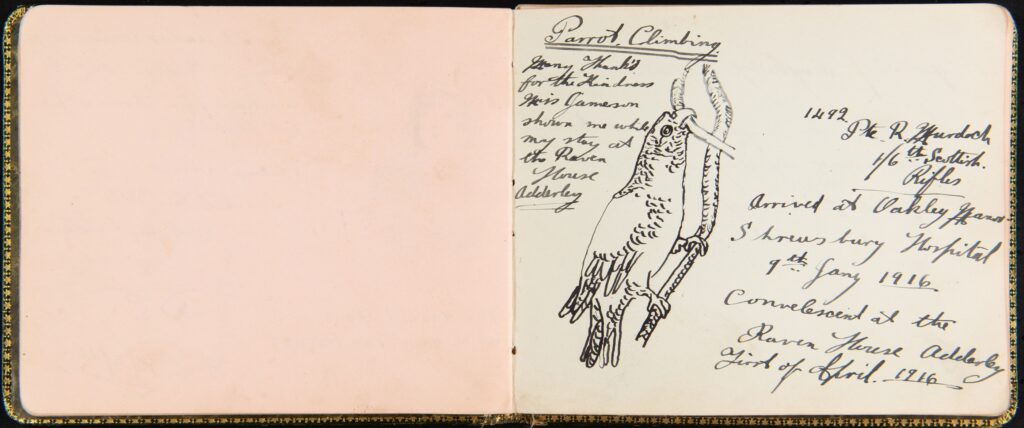 Parrot. Climbing.
Many Thanks
for the Kindness
Miss Jameson
shown me while
my stay at
the Raven
House
Adderley
1492
Pte R. Murdoch
1/6th Scottish.
Rifles
Arrived at Oakley Manor
Shrewsbury Hospital
9th Jany 1916
Convelescent at the
Raven House Adderley
First of April. 1916